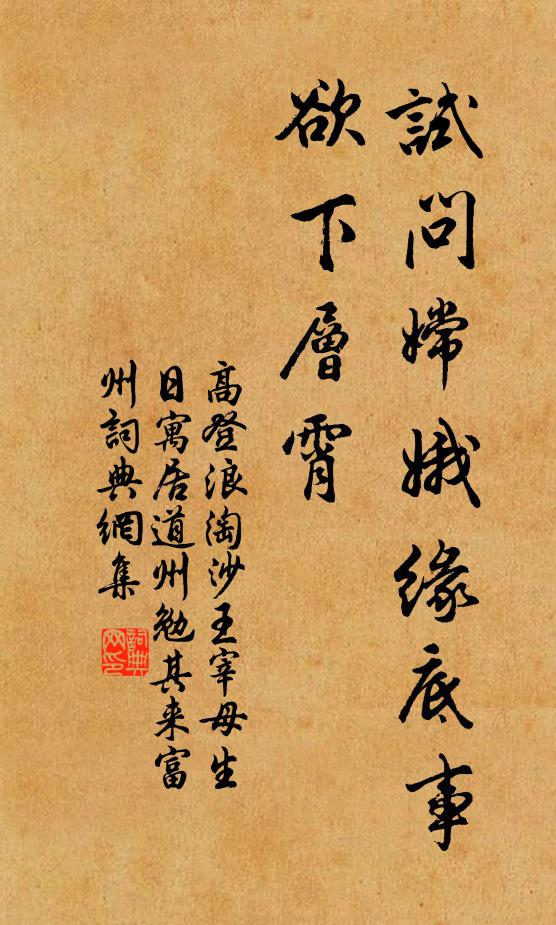 試問嫦娥緣底事
欲下層霄
高登浪淘沙王宰母生
日寓居道州勉其来富
州詞典網集
詞典网印